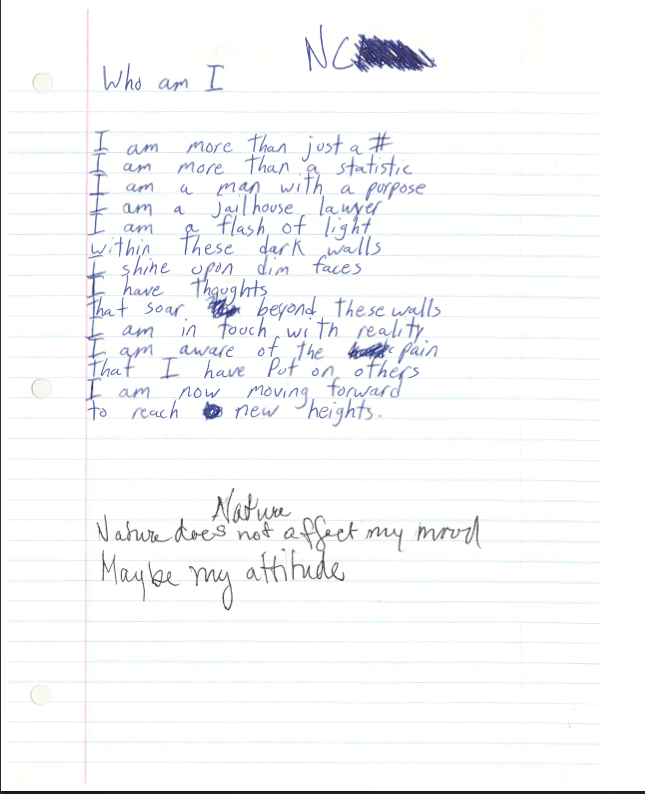 NC
Who am I
I am more than just a #
I am more than a statistic
I am a man with a purpose
I am a jailhouse lawyer
I am a flash of light
within these dark walls
I shine upon dim faces
I have thoughts
that soar beyond these walls
I am in touch with reality
I am aware of the pain
that I have put on others
I am now moving forward
to reach new heights.
Nature
Nature does not affect my mood
Maybe my attitude